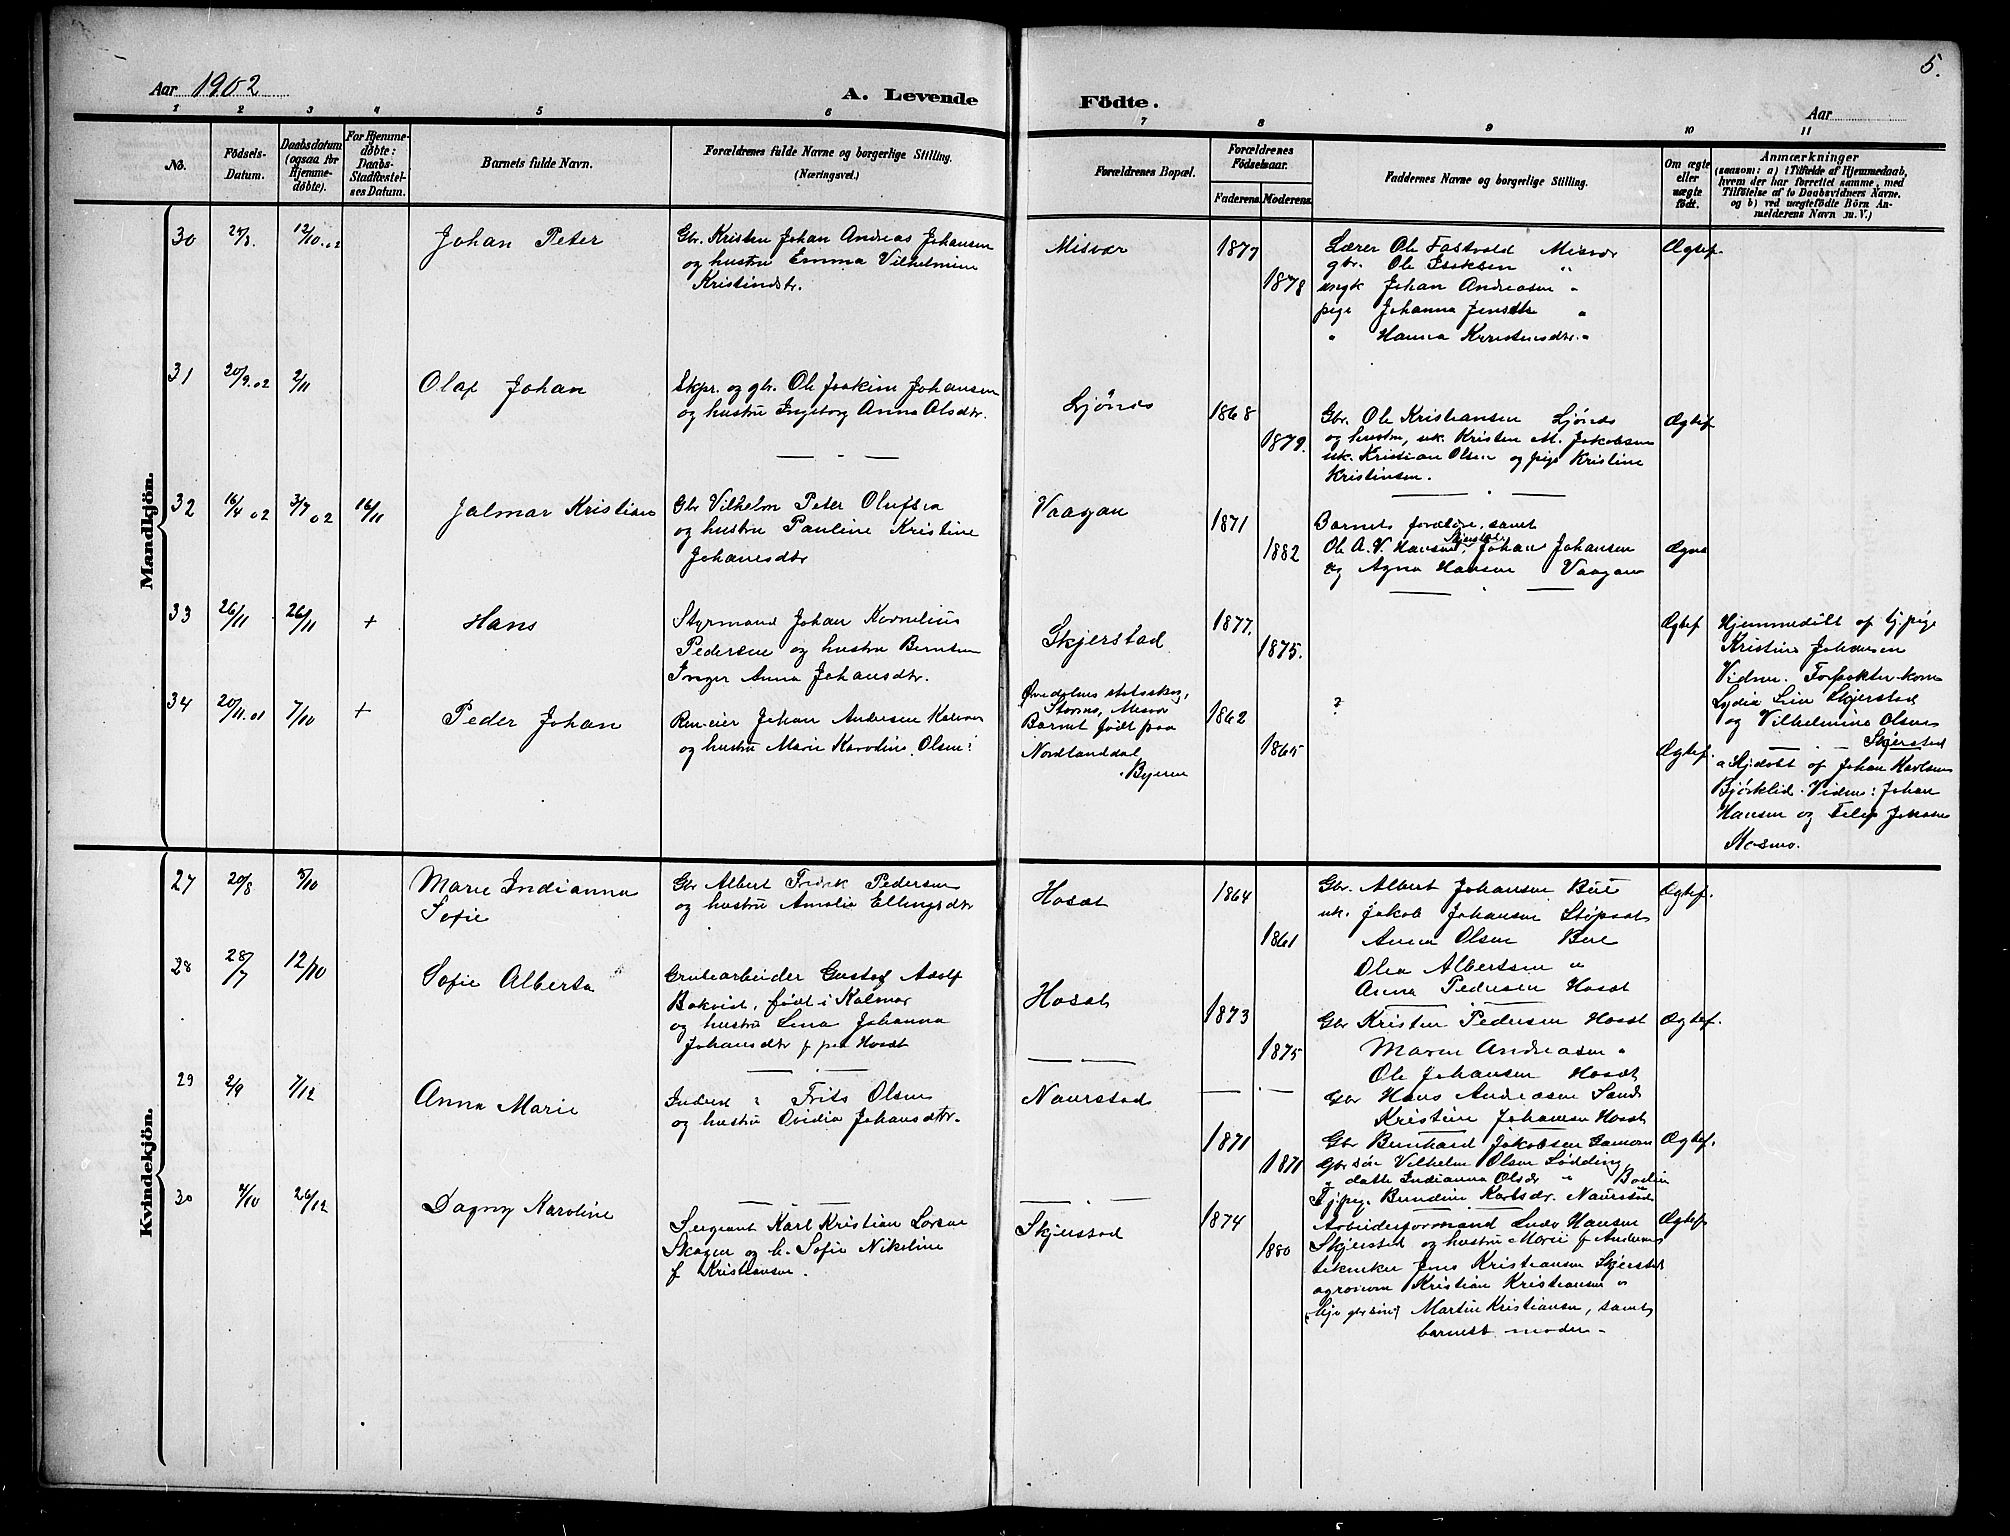 5.
Aar 1902
A. Levende Födte.
Aar
1 2 3 4 5 6 7 8 9 10 11
No.
Födsels-Datum.
Daabsdatum (ogsaa for Hjemmedöbte).
For Hjemmedöbte: Daabs-Stadfæstelses Datum.
Barnets fulde Navn.
Forældrenes fulde Navne og borgerlige Stilling.
(Næringsvei.)
Forældrenes Bopæl.
Forældrenes Födselsaar.
Faderens. Moderens.
Faddernes Navne og borgerlige Stilling.
Om ægte eller uægte födt.
Anmærkninger
(saasom: a) i Tilfælde af Hjemmedaab,
hvem der har forrettet samme, med
Tilföielse af to Daabsvidners Navne.
og b) ved uægtefödte Börn Anmelderens Navn m. V.)
Mandkjön.
30 12/10.02 Johan Peter
Gbr. Kristen Johan Andreas Johansen
og hustru Emma Vilhelmine
Kristindtr.
Misvær 1877
1878
Lærer Ole Fastvold Misvær
gbr. Ole Isaksen "
ungk Johan Andreasen "
pige Johanna Jensdtr "
" Hanna Kristensdtr. "
Ægtef.
31 20/9.02 2/11 Olaf Johan
Skpr. og gbr. Ole Joakim Johansen
og hustru Ingeborg Anna Olsdtr.
Ljönes 1868
1879.
Gbr. Ole Kristiansen Ljönes
og hustru, uk. Kristen M. Jakobsen
uk. Kristian Olsen og pige Kristine
Kristensen.
Ægtef
32 16/4 02 3/7 02 16/11 Jalmar Kristian
Gbr Vilhelm Peter Olufsen
og hustru Pauline Kristine
Johansdtr
Vaagan 1871
1882
Barnets forældre, samt
Ole A. V. Hansen, Johan Johansen
og Agna Hansen Vaagan
Ægte
33 26/11 26/11 + Hans
Styrmand Johan Kornelius
Pedersen og hustru Berntine
Inger Anna Johansdtr.
Skjerstad 1877.
1875.
Ægtef
Hjemmedöbt af tj. pige
Kristine Johansen
Vidner. Forpakterkone
Lydia Lien Skjerstad
og Vilhelmine Olsen
Skjerstad
34 20/11.01 7/10 + Peder Johan
Ren-eier Johan Andersen
og hustru Marie Karoline Olsen
Misvær
Barnet födt paa
Nordlanddal
Byeren
1862
1865
?
Ægtef.
Hjdöbt af Johan Karlsen
Björklid. Vidner: Johan
Hansen og Filip
Mosmo.
Kvindekjön.
27 20/8 5/10 Marie Indianna
Sofie
Gbr Albert Fredrik Pedersen
og hustru Amalia Ellingsdtr
Hosæt 1864
1861
Gbr. Albert Johansen
uk. Jakob Johansen Stöpset
Anna Olsen
Olea Albertsen "
Anna Pedersen Hosæt
Ægtef.
28 28/7 12/10 Sofie Alberta
Grubearbeider Gustav Adolf
Bokvist, födt i Kalmar
og hustru Lina Johanna
Johansdtr f paa Hosæt
Hosæt 1873
1875
Gbr Kristen Pedersen Hosæt
Maren Andreasen "
Ole Johansen Hosæt
Gbr Hans Andreasen Sand
Kristine Johansen Hosæt
Ægtef.
29 2/9 7/12 Anna Marie
Inderst Frits Olsen
og hustru Ovidia Johansdtr.
Naurstad 1871
1871
Gbr Bernhard Jakobsen
Gbr sön Vilhelm Olsen Lödding
" datter Indianna Olsdtr " Bodin
Tjpige. Bendine Karlsdtr. Naurstad
Ægtef.
30 26/12 Dagny Karoline
Sergeant Karl Kristian Larsen
Skagen og h. Sofie Nikoline
f Kristiansen.
Skjerstad 1874
1880
Arbeiderformand Ludv Hansen
Skjerstad og hustru Marie f Andersen
tekniker Jens Kristiansen Skjerstad
agronom Kristian Kristiansen "
Martin Kristiansen, samt
barnets moder.
Ægtef.